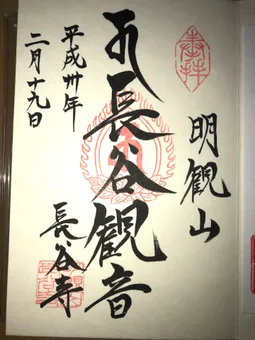 奉拝
明観山
長谷観音
長谷寺
平成卅年
二月十九日